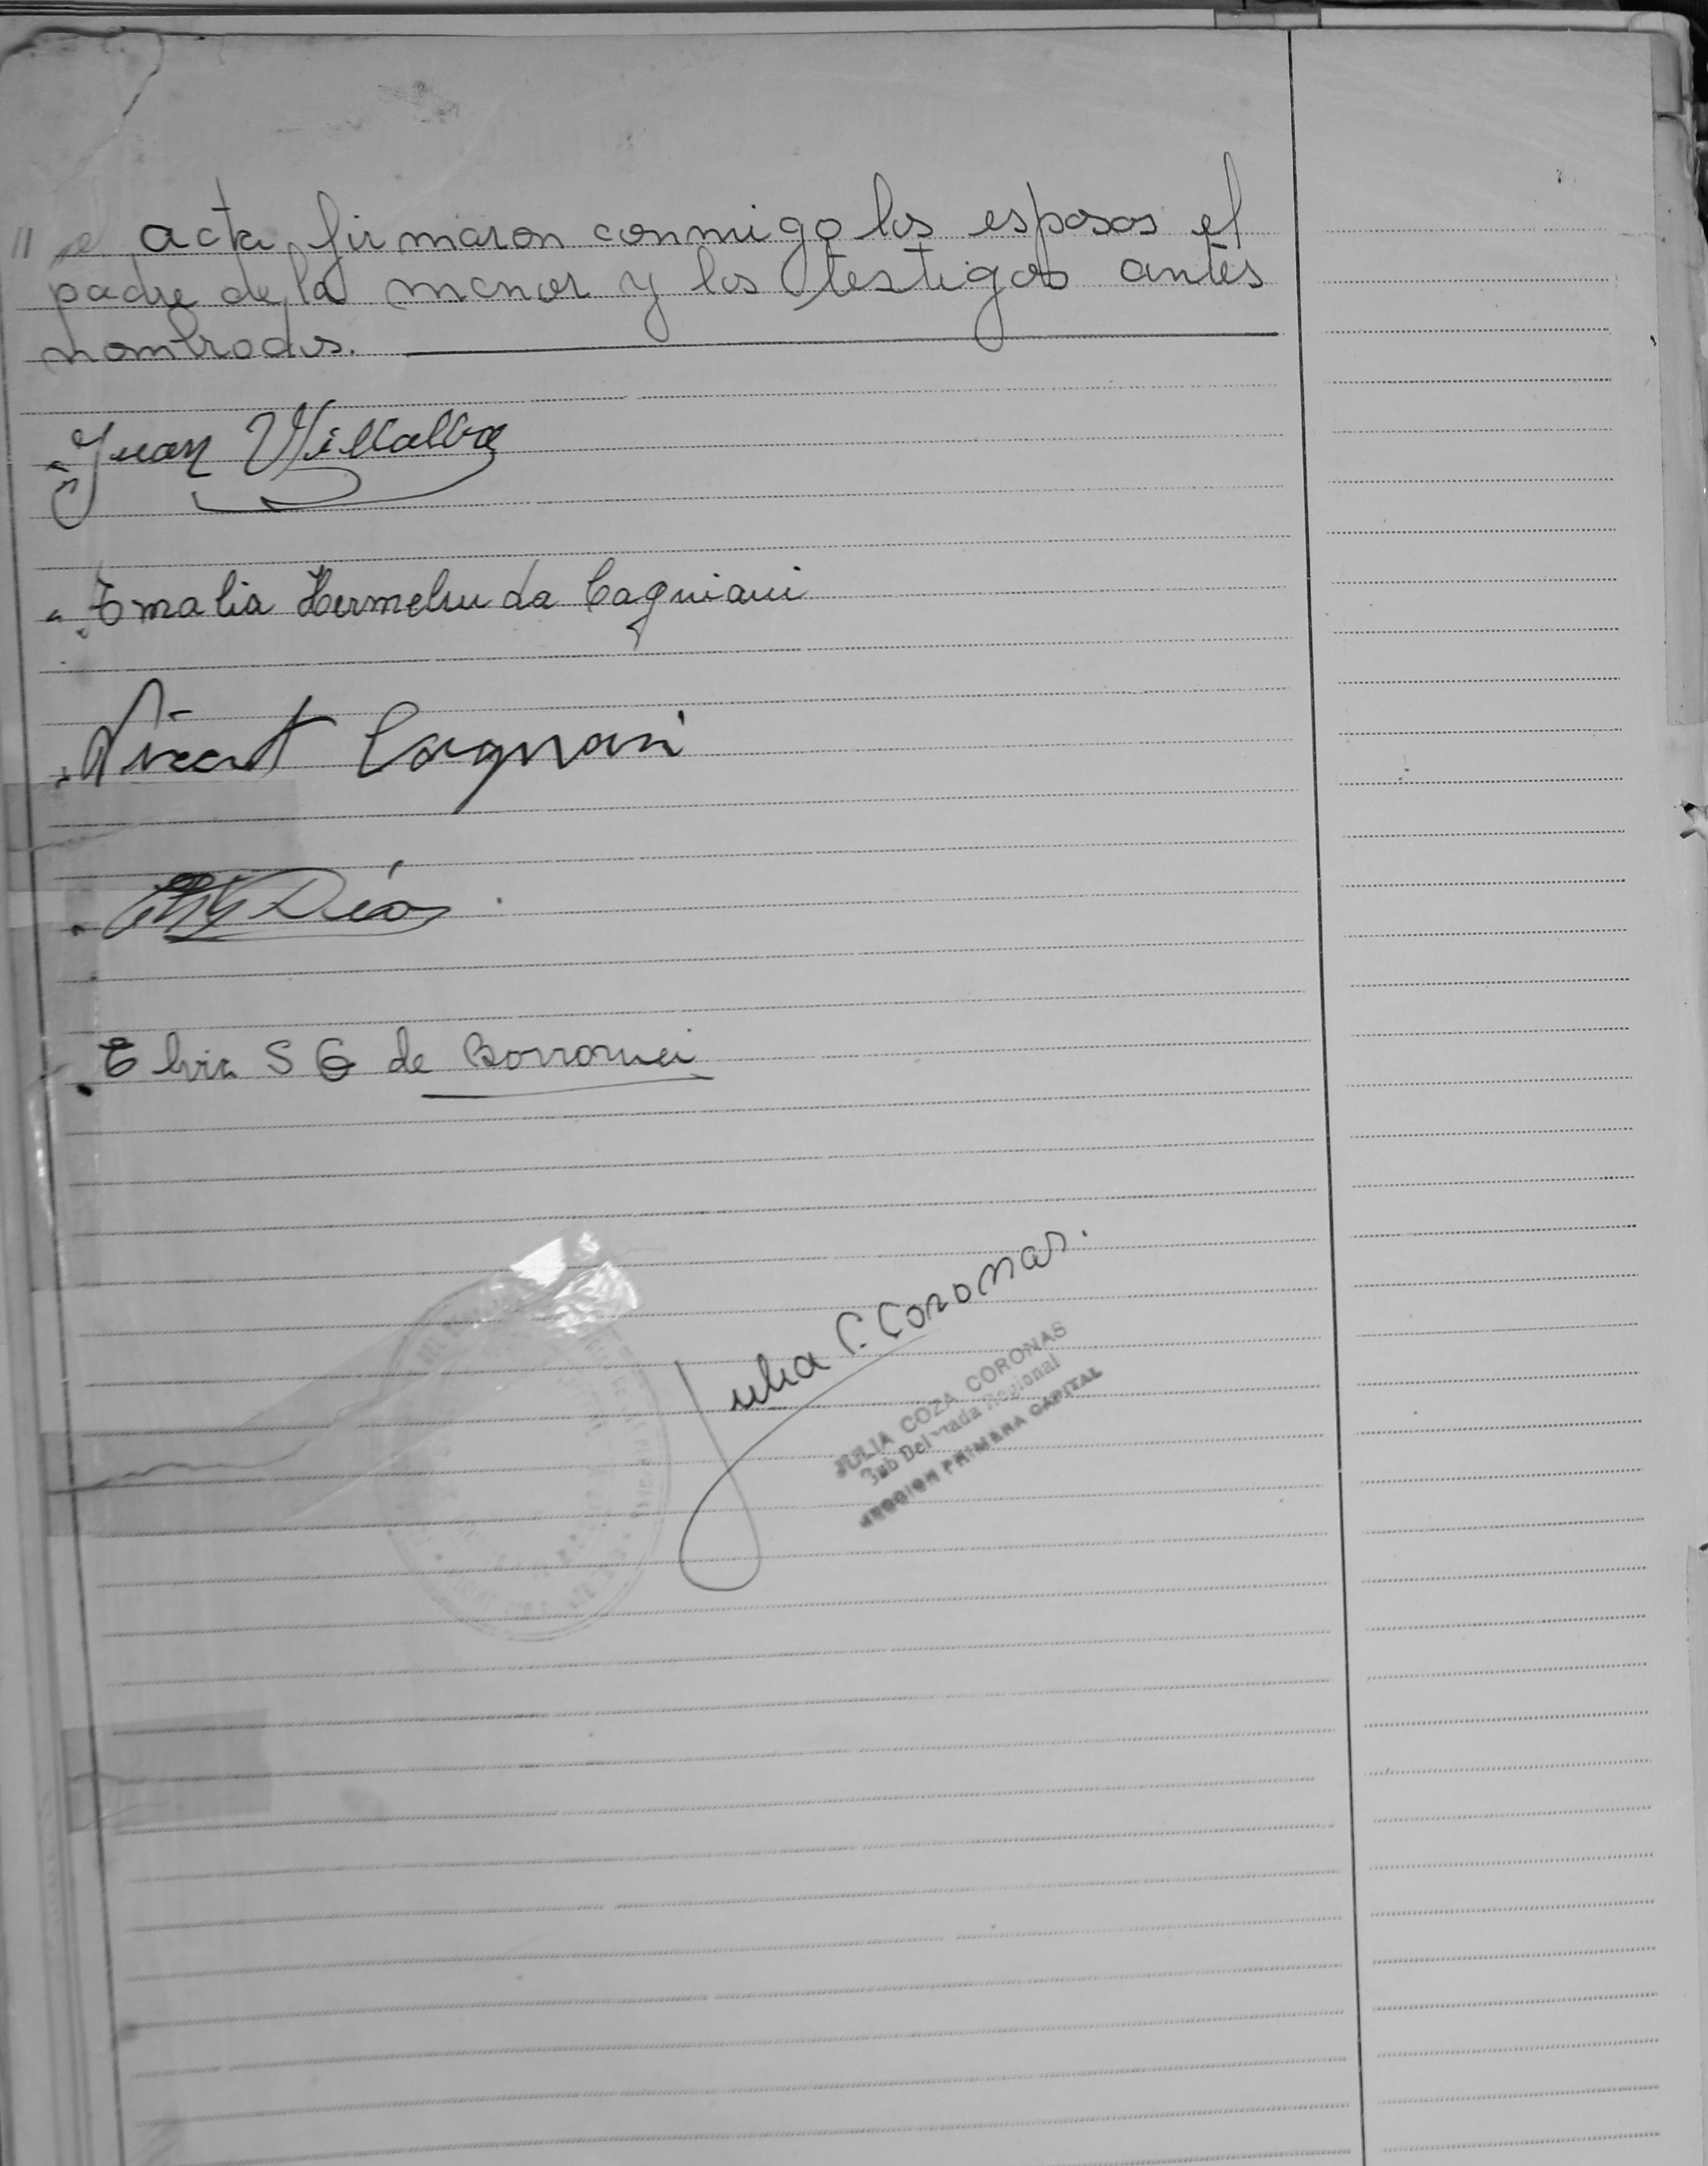 " el acta, firmaron conmigo los esposos el
padre de la menor y los testigos antes
nombrados.
Juan Villalba
Emalia Hermelinda Cagniani
Cagnani
Díaz
Elvia S G de Borromei
Julia C. Coronas.
JULIA COZA CORONAS
Sub Delegada Regional
SECCION PRIMERA CAPITAL